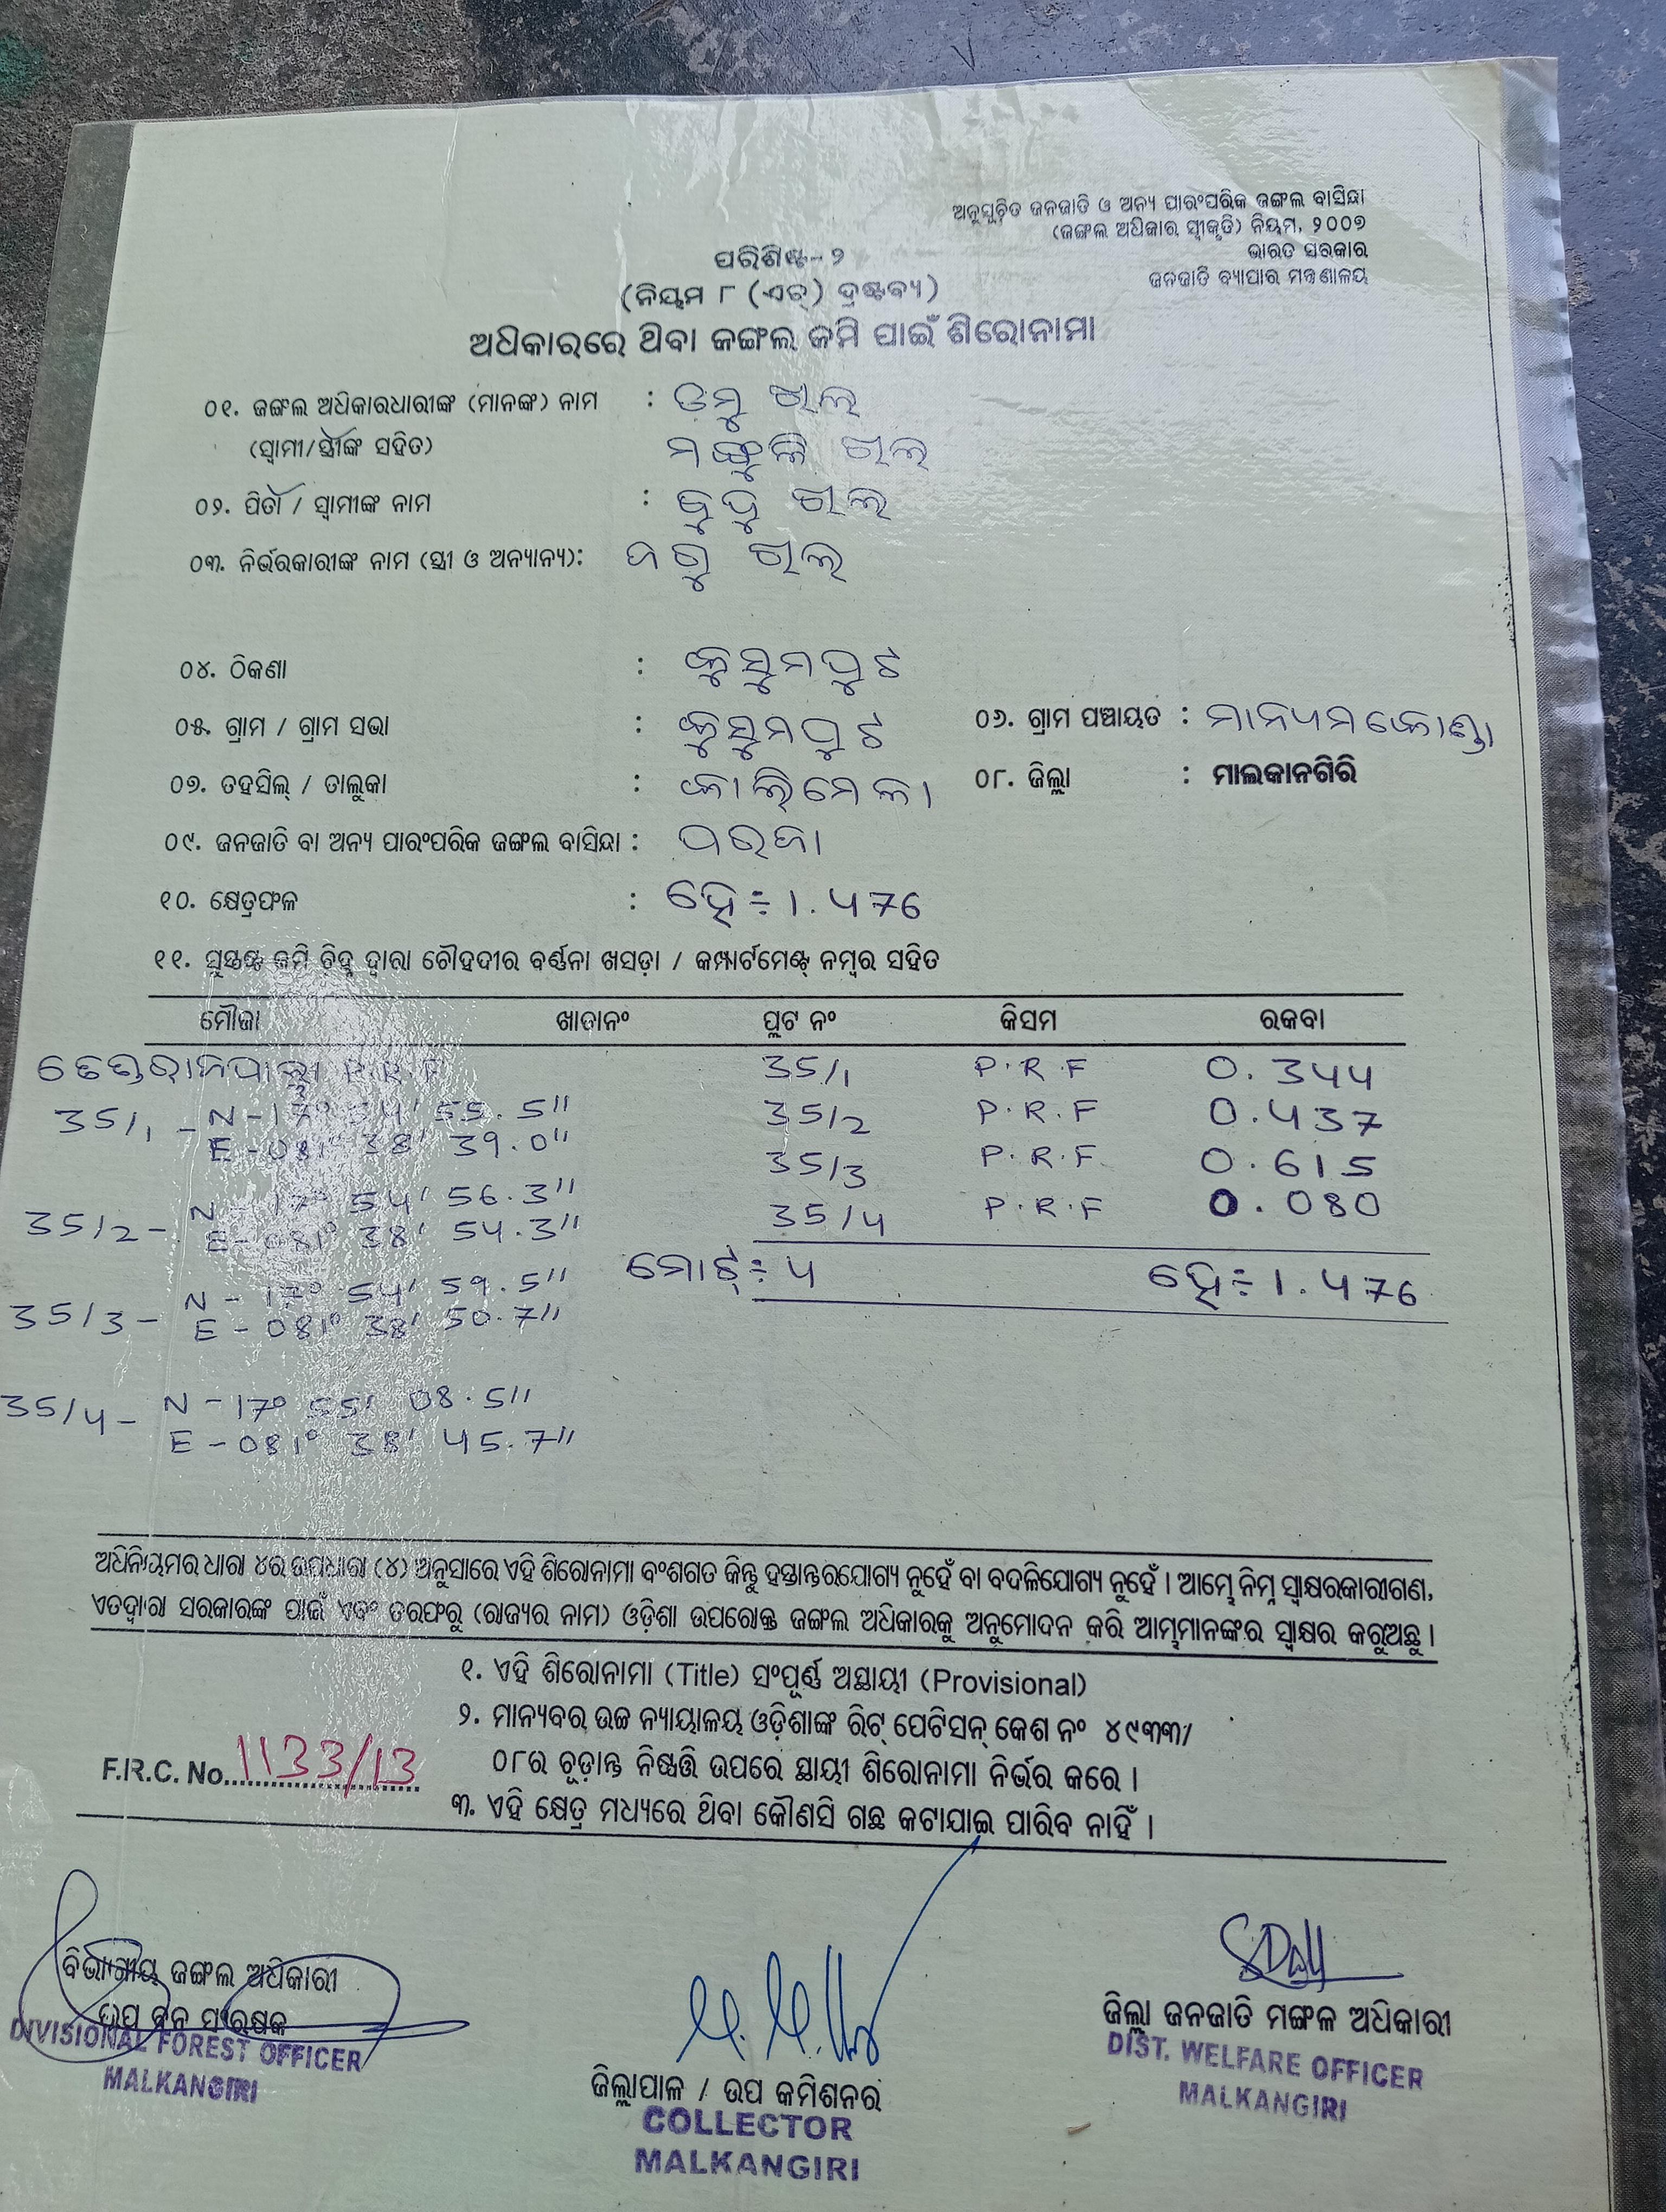 ଅନୁସୂଚିତ ଜନଜାତି ଓ ଅନ୍ୟ ପାରଂପରିକ ଜଙ୍ଗଲ ବାସିନ୍ଦା
(ଜଙ୍ଗଲ ଅଧିକାର ସ୍ୱୀକୃତି) ନିୟମ, ୨୦୦୭
ଭାରତ ସରକାର
ଜନଜାତି ବ୍ୟାପାର ମନ୍ତ୍ରଣାଳୟ
ପରିଶିଷ୍ଟ-୨
(ନିୟମ ୮ (ଏଚ୍) ଦ୍ରଷ୍ଟବ୍ୟ)
ଅଧିକାରରେ ଥିବା ଜଙ୍ଗଲ ଜମି ପାଇଁ ଶିରୋନାମା
୦୧. ଜଙ୍ଗଲ ଅଧିକାରଧାରୀଙ୍କ (ମାନଙ୍କ) ନାମ : ଡମୁ ଖିଲ
(ସ୍ୱାମୀ/ସ୍ତ୍ରୀଙ୍କ ସହିତ) ଖିଲ
୦୨. ପିତା / ସ୍ୱାମୀଙ୍କ ନାମ : ଖିଲ
୦୩. ନିର୍ଭରକାରୀଙ୍କ ନାମ (ସ୍ତ୍ରୀ ଓ ଅନ୍ୟାନ୍ୟ): ଖିଲ
୦୪. ଠିକଣା : କୁସୁମପୁଟ
୦୫. ଗ୍ରାମ / ଗ୍ରାମ ସଭା : କୁସୁମପୁଟ ୦୬. ଗ୍ରାମ ପଞ୍ଚାୟତ : ମାନ୍ୟମକୋଣ୍ଡା
୦୭. ତହସିଲ୍ / ତାଲୁକା : କାଲିମେଳା ୦୮. ଜିଲ୍ଲା : ମାଲକାନଗିରି
୦୯. ଜନଜାତି ବା ଅନ୍ୟ ପାରଂପରିକ ଜଙ୍ଗଲ ବାସିନ୍ଦା : ପରଜା
୧୦. କ୍ଷେତ୍ରଫଳ : ହେ÷1.476
୧୧. ସୁସ୍ପଷ୍ଟ ଜମି ଚିହ୍ନ ଦ୍ୱାରା ଚୌହଦୀର ବର୍ଣ୍ଣନା ଖସଡ଼ା / କମ୍ପାର୍ଟମେଣ୍ଟ୍ ନମ୍ବର ସହିତ
ମୌଜା ଖାତାନଂ ପ୍ଲଟ ନଂ କିସମ ରକବା
P.R.F 35/1 P.R.F 0.344
35/1 - N-17° 54' 55.5" 35/2 P.R.F 0.437
E-081° 38' 39.0" 35/3 P.R.F 0.615
35/2 - N - 17° 54' 56.3" 35/4 P.R.F 0.080
E-081° 38' 54.3"
ମୋଟ୍÷ 4 ହେ÷1.476
35/3 - N - 17° 54' 59.5"
E - 081° 38' 50.7"
35/4 - N - 17° 55' 08.5"
E - 081° 38' 45.7"
ଅଧିନିୟମର ଧାରା ୪ର ଉପଧାରା (୪) ଅନୁସାରେ ଏହି ଶିରୋନାମା ବଂଶଗତ କିନ୍ତୁ ହସ୍ତାନ୍ତରଯୋଗ୍ୟ ନୁହେଁ ବା ବଦଳିଯୋଗ୍ୟ ନୁହେଁ । ଆମ୍ଭେ ନିମ୍ନ ସ୍ୱାକ୍ଷରକାରୀଗଣ,
ଏତଦ୍ୱାରା ସରକାରଙ୍କ ପାଇଁ ଏବଂ ତରଫରୁ (ରାଜ୍ୟର ନାମ) ଓଡ଼ିଶା ଉପରୋକ୍ତ ଜଙ୍ଗଲ ଅଧିକାରକୁ ଅନୁମୋଦନ କରି ଆମ୍ଭମାନଙ୍କର ସ୍ୱାକ୍ଷର କରୁଅଛୁ ।
୧. ଏହି ଶିରୋନାମା (Title) ସଂପୂର୍ଣ୍ଣ ଅସ୍ଥାୟୀ (Provisional)
୨. ମାନ୍ୟବର ଉଚ୍ଚ ନ୍ୟାୟାଳୟ ଓଡ଼ିଶାଙ୍କ ରିଟ୍ ପେଟିସନ୍ କେଶ ନଂ ୪୯୩୩/
୦୮ର ଚୂଡ଼ାନ୍ତ ନିଷ୍ପତ୍ତି ଉପରେ ସ୍ଥାୟୀ ଶିରୋନାମା ନିର୍ଭର କରେ ।
F.R.C. No. 1133/13
୩. ଏହି କ୍ଷେତ୍ର ମଧ୍ୟରେ ଥିବା କୌଣସି ଗଛ କଟାଯାଇ ପାରିବ ନାହିଁ ।
ବିଭାଗୀୟ ଜଙ୍ଗଲ ଅଧିକାରୀ
ଉପ ବନ ସଂରକ୍ଷକ
DIVISIONAL FOREST OFFICER
MALKANGIRI
ଜିଲ୍ଲାପାଳ / ଉପ କମିଶନର
COLLECTOR
MALKANGIRI
ଜିଲ୍ଲା ଜନଜାତି ମଙ୍ଗଳ ଅଧିକାରୀ
DIST. WELFARE OFFICER
MALKANGIRI